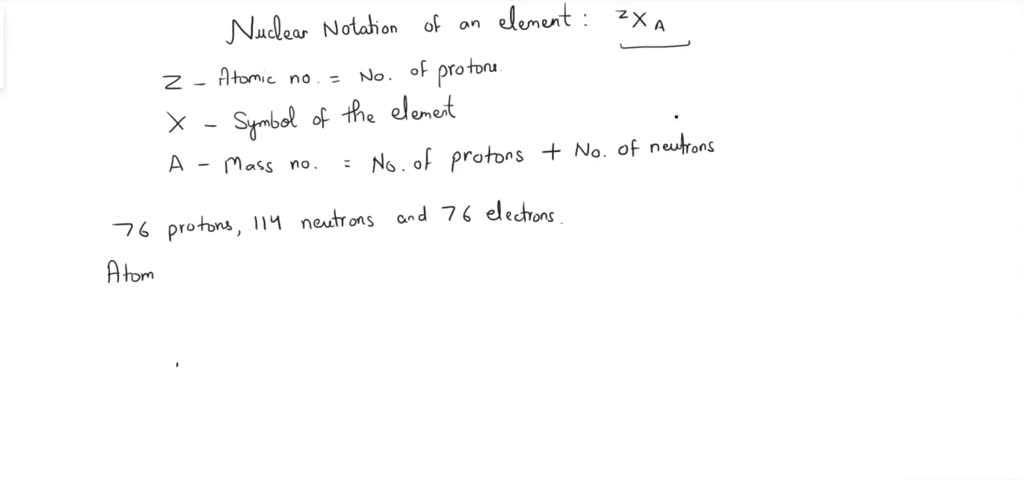 Nuclear Notation of an element : ᶻX_A
Z - Atomic no. = No. of protons.
X - Symbol of the element
A - Mass no. = No. of protons + No. of neutrons
76 protons, 114 neutrons and 76 electrons.
Atom